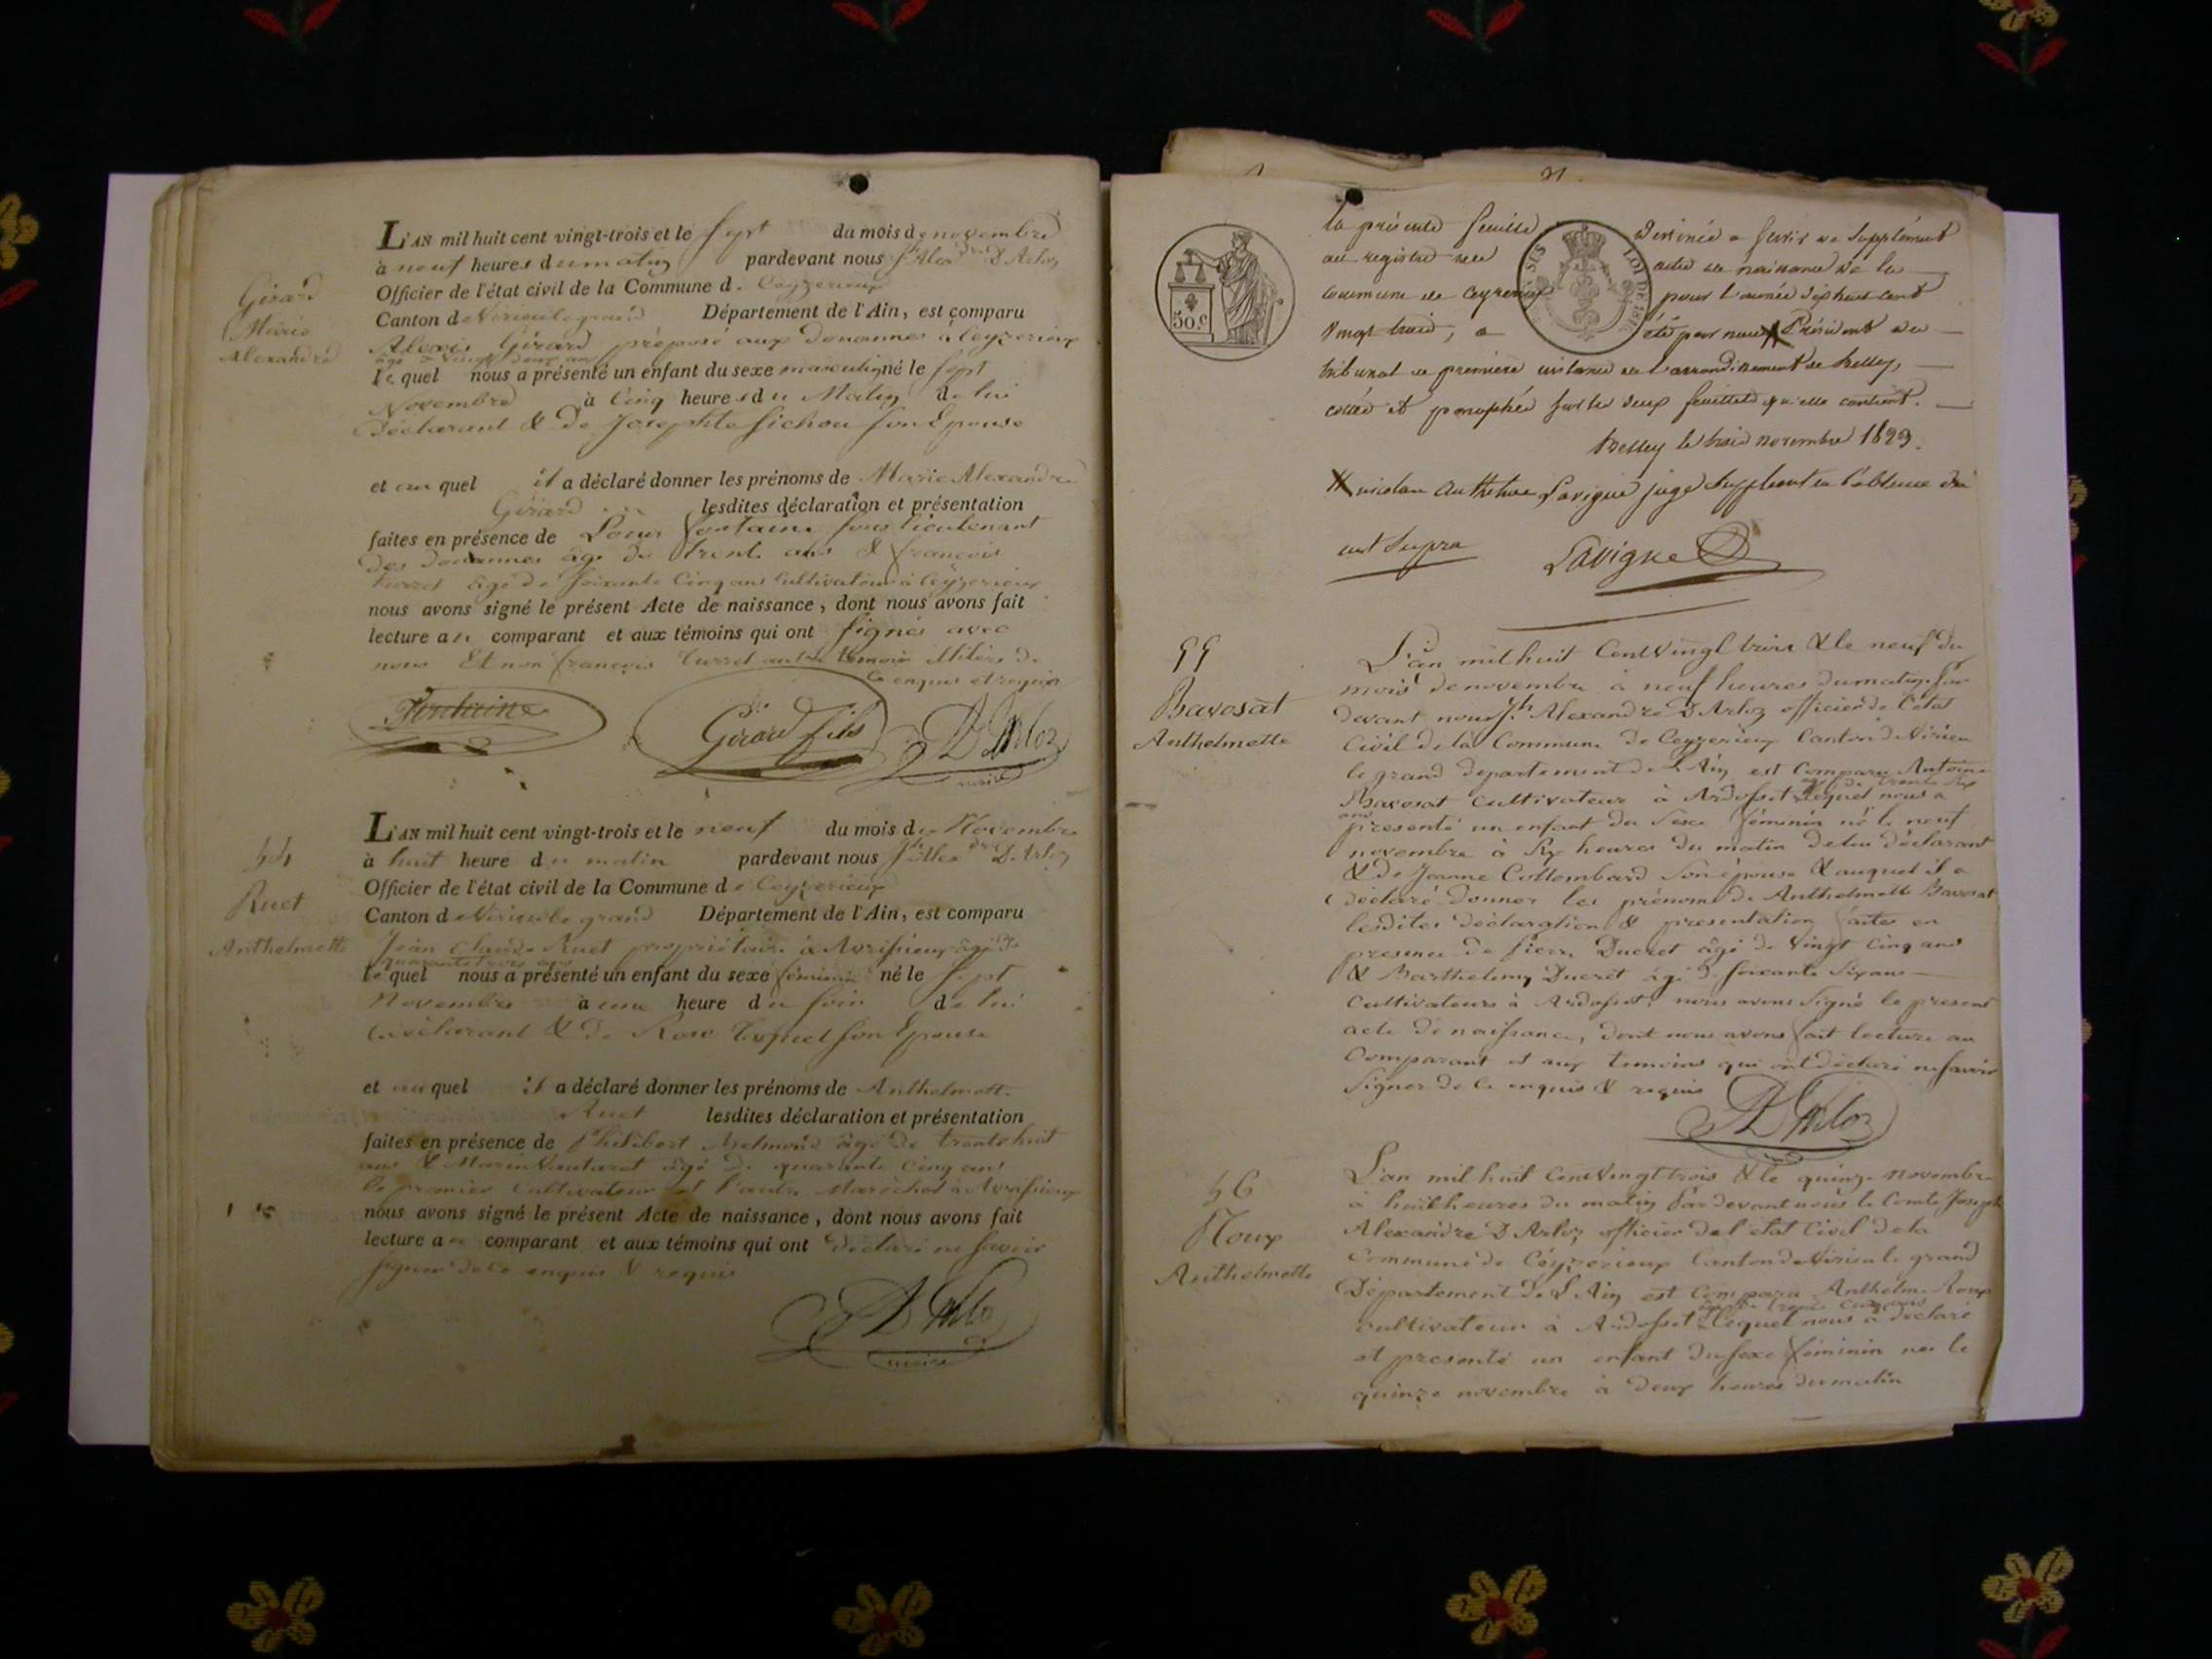 Girard
Marie
Alexandre
L'AN mil huit cent vingt-trois et le sept du mois de novembre
à neuf heures du matin pardevant nous Jh Alexdre D'Arloz
Officier de l'état civil de la Commune d. Ceyzerieux
Canton de Virieu le grand Département de l'Ain, est comparu
Alexis Girard préposé aux douannes à Ceyzerieux
âgé de vingt deux ans
le quel nous a présenté un enfant du sexe masculin né le sept
Novembre à Cinq heures du Matin de lui
Déclarant & De Josephte fichou son Epouse
et au quel il a déclaré donner les prénoms de Marie Alexandre
Girard lesdites déclaration et présentation
faites en présence de Louis fontaine sous lieutenant
des douannes âgé de trente ans & françois
âgé de soixante Cinq ans Cultivateur à Ceyzerieux
nous avons signé le présent Acte de naissance, dont nous avons fait
lecture au comparant et aux témoins qui ont signés avec
nous Et non françois témoin illitéré de
Ce enquis et requis
Fontaine
Girard fils
D'Arloz
maire
44
Ruet
Anthelmette
L'AN mil huit cent vingt-trois et le neuf du mois de Novembre
à huit heure du matin pardevant nous Jh Alexdre D'Arloz
Officier de l'état civil de la Commune de Ceyzerieux
Canton de Virieu le grand Département de l'Ain, est comparu
Jean Claude Ruet propriétaire à Avrissieux âgé de
quarante trois ans
le quel nous a présenté un enfant du sexe féminin né le sept
Novembre à une heure du soir de lui
Déclarant & de Rose son Epouse
et au quel il a déclaré donner les prénoms de Anthelmette
Ruet lesdites déclaration et présentation
faites en présence de Philibert âgé de trente huit
ans & Marin âgé de quarante cinq ans
le premier Cultivateur et l'autre Maréchal à Avrissieux
nous avons signé le présent Acte de naissance, dont nous avons fait
lecture au comparant et aux témoins qui ont déclaré ne savoir
signer de ce enquis & requis
D'Arloz
maire
50 C
SES
LOI DE
la présente feuille destinée a servir de supplément
au registre des actes de naissance de la
commune de Ceyzerieux pour l'année dix huit cent
vingt trois, a été par nous X Président du
tribunal de première instance de l'arrondissement de Belley,
cotée et paraphée sur les deux feuillets qu'elle contient.
Belley le trois novembre 1823.
X nicolas Anthelme Lavigne juge suppléant en l'absence du
ut supra Lavigne
55
Bavosat
Anthelmette
L'an mil huit Cent Vingt trois & le neuf du
mois de novembre à neuf heures du matin par
devant nous Jh Alexandre D'Arloz officier de l'état
Civil de la Commune de Ceyzerieux Canton de Virieu
le grand département de l'Ain, est Comparu Antoine
âgé de trente six
Bavosat Cultivateur à Ardosset lequel nous a
ans
présenté un enfant du sexe féminin né le neuf
novembre à six heures du matin de lui déclarant
& de Jeanne Collombard son épouse & auquel il a
déclaré donner les prénoms de Anthelmette Bavosat
lesdites déclaration & présentation faites en
présence de Pierre Ducret âgé de vingt cinq ans
& Barthelemy Ducret âgé de soixante six ans
cultivateurs à Ardosset, nous avons signé le present
acte de naissance, dont nous avons fait lecture au
Comparant et aux témoins qui ont déclaré ne savoir
signer de ce enquis & requis
D'Arloz
maire
56
Roux
Anthelmette
L'an mil huit Cent Vingt trois & le quinze novembre
à huit heures du matin Pardevant nous le Comte Joseph
Alexandre D'Arloz officier de l'état Civil de la
Commune de Ceyzerieux Canton de Virieu le grand
Département De L'Ain est Comparu Anthelme Roux
âgé de trente cinq ans
cultivateur à Ardosset lequel nous a déclaré
et présenté un enfant du sexe féminin né le
quinze novembre à deux heures du matin